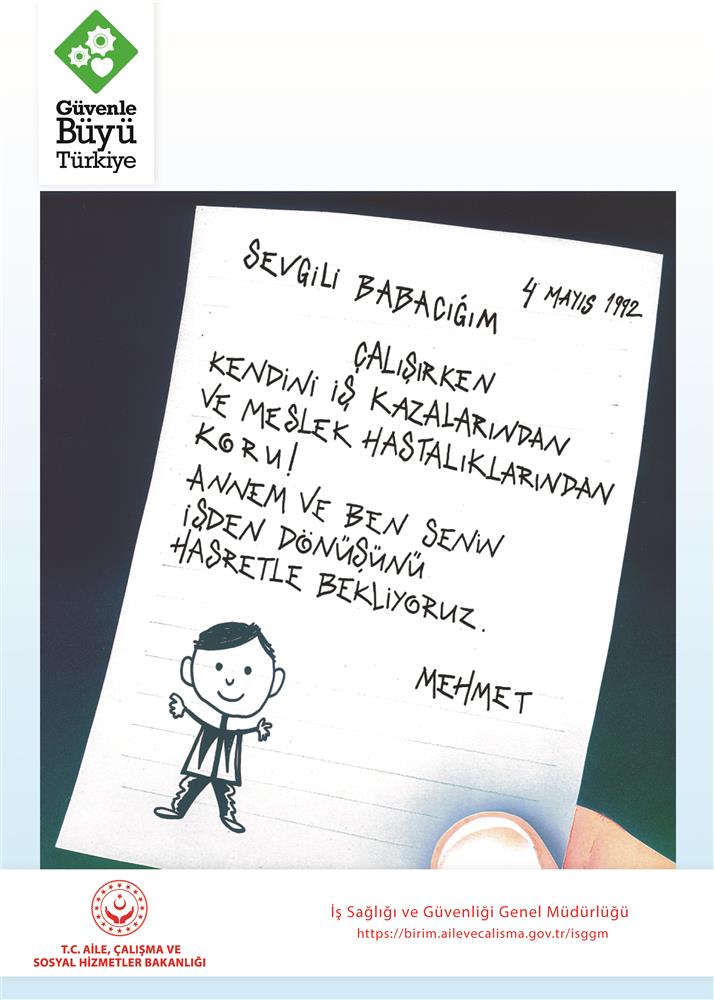 Güvenle
Büyü
Türkiye
SEVGİLİ BABACIĞIM
4 MAYIS 1992
ÇALIŞIRKEN
KENDİNİ İŞ KAZALARINDAN
VE MESLEK HASTALIKLARINDAN
KORU!
ANNEM VE BEN SENİN
İŞDEN DÖNÜŞÜNÜ
HASRETLE BEKLİYORUZ.
MEHMET
T.C. AİLE, ÇALIŞMA VE
SOSYAL HİZMETLER BAKANLIĞI
İş Sağlığı ve Güvenliği Genel Müdürlüğü
https://birim.ailevecalisma.gov.tr/isggm